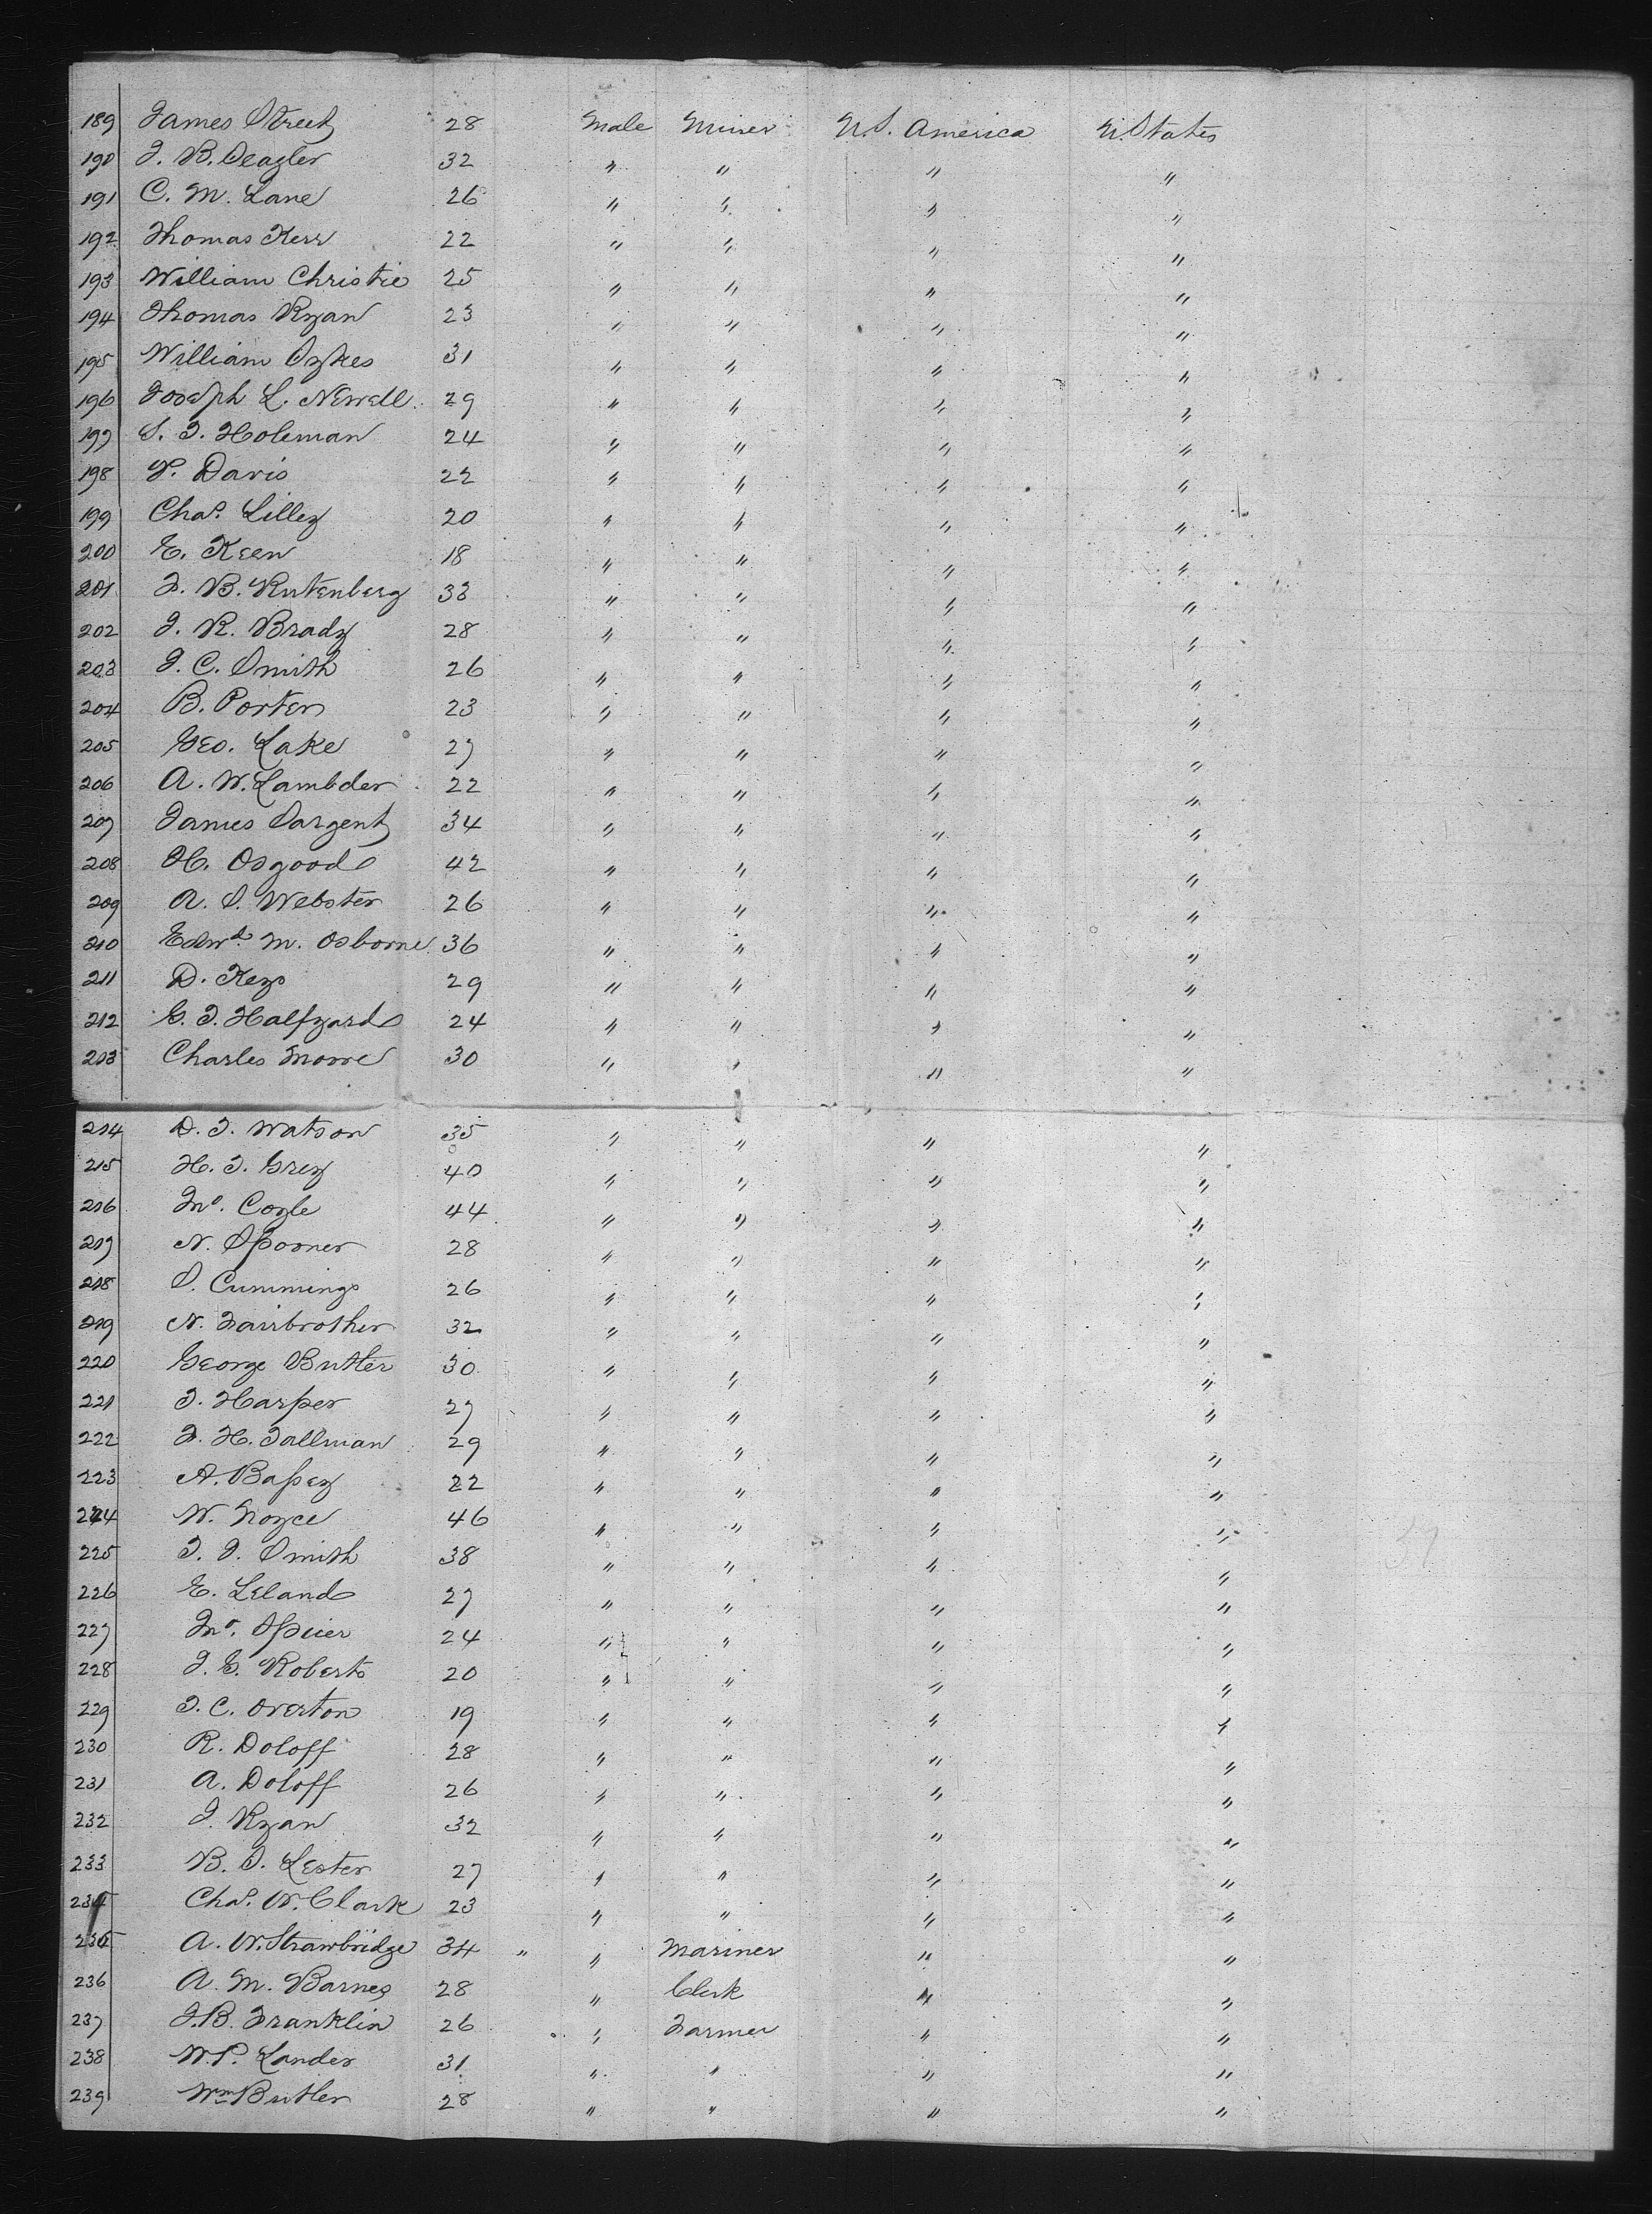 189 James Street 28 Male Miner U.S. America U. States
190 J. B. Deagler 32 " " " "
191 C. M. Lane 26 " " " "
192 Thomas Kerr 22 " " " "
193 William Christie 25 " " " "
194 Thomas Ryan 23 " " " "
195 William Sykes 31 " " " "
196 Joseph L. Newell 29 " " " "
197 S. T. Holeman 24 " " " "
198 P. Davis 22 " " " "
199 Chas. Lilley 20 " " " "
200 E. Keen 18 " " " "
201 F. B. Rutenberg 33 " " " "
202 J. R. Brady 28 " " " "
203 J. C. Smith 26 " " " "
204 B. Porter 23 " " " "
205 Geo. Lake 27 " " " "
206 A. W. Lambder 22 " " " "
207 James Sargent 34 " " " "
208 H. Osgood 42 " " " "
209 A. S. Webster 26 " " " "
210 Edwd. M. Osborne 36 " " " "
211 D. Keys 29 " " " "
212 G. T. Halfyard 24 " " " "
213 Charles Morre 30 " " " "
214 D. T. Watson 35 " " " "
215 H. T. Grey 40 " " " "
216 Jno. Coyle 44 " " " "
217 N. Spooner 28 " " " "
218 S. Cummings 26 " " " "
219 N. Fairbrother 32 " " " "
220 George Butler 30 " " " "
221 T. Harper 27 " " " "
222 F. H. Tallman 29 " " " "
223 A. Bassey 22 " " " "
224 W. Noyce 46 " " " "
225 T. J. Smith 38 " " " "
226 E. Leland 27 " " " "
227 Jno. Spicer 24 " " " "
228 J. G. Roberts 20 " " " "
229 T. C. Overton 19 " " " "
230 R. Doloff 28 " " " "
231 A. Doloff 26 " " " "
232 J. Ryan 32 " " " "
233 B. S. Lester 27 " " " "
234 Chas. W. Clark 23 " " " "
235 A. W. Strawbridge 34 " " Mariner " "
236 A. M. Barnes 28 " Clerk " "
237 J. B. Franklin 26 " Farmer " "
238 W. P. Lander 31 " " " "
239 Wm. Butler 28 " " " "